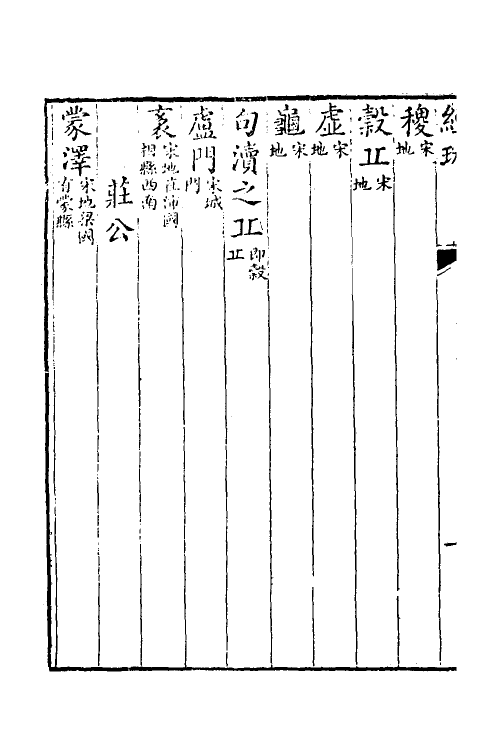 稷宋地
穀丘宋地
虛宋地
龜宋地
句瀆之丘即穀丘
盧門宋城門
袲宋地在沛國相縣西南
莊公
蒙澤宋地梁國有蒙縣